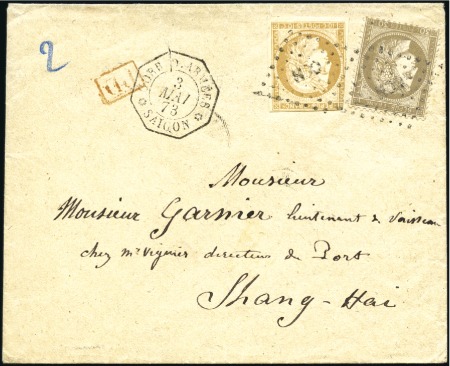 2
P.D.
CORR. D. ARMÉES
3
MAI
73
SAIGON
Monsieur
Monsieur Garnier lieutenant de Vaisseau
chez Mr Viguier directeur du Port
Shang-Hai